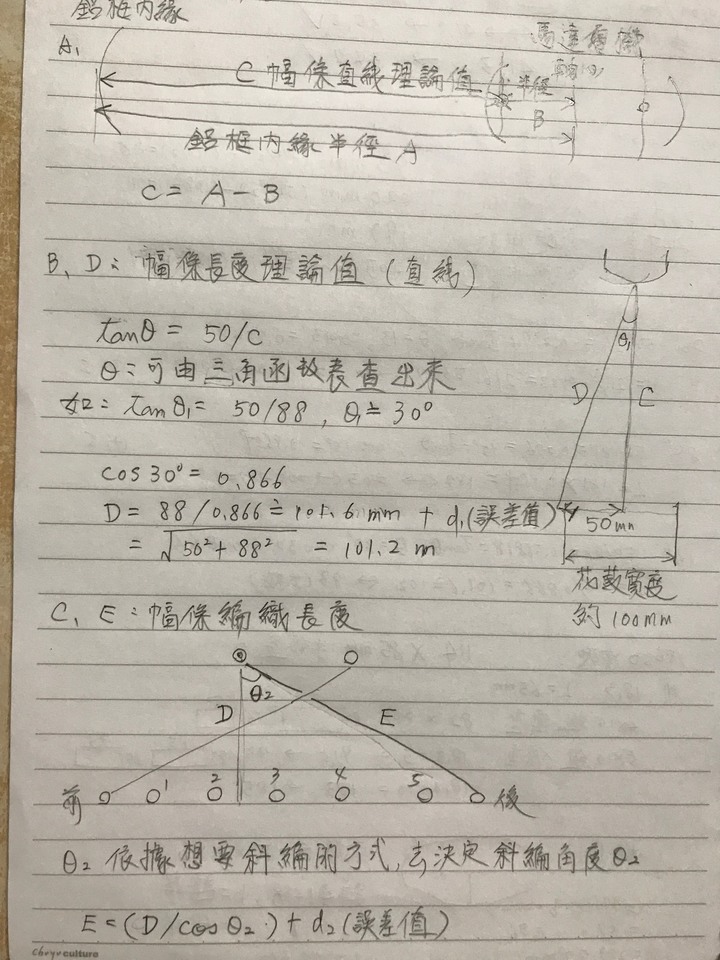 鋁框內緣
A,
C 幅條直线理論值
半徑
B
鋁框內緣半徑 A
C = A - B
B、D: 幅條長度理論值 (直线)
tanθ = 50/C
θ: 可由三角函數表查出來
如: tanθ₁ = 50/88 , θ₁≒30°
cos30° = 0.866
D = 88/0.866 ≒ 101.6 mm + d₁(誤差值)
= √50² + 88² = 101.2 m
θ₁
D
C
50mm
花鼓寬度
約100mm
C、E: 幅條編織長度
θ₂
D
E
前
1
2
3
4
5
後
θ₂ 依據想要斜編的方式,去決定斜編角度θ₂
E = (D/cosθ₂) + d₂(誤差值)